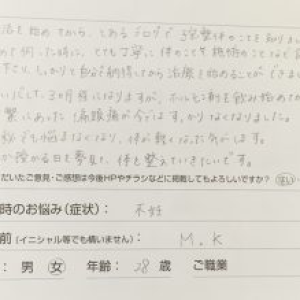 治を始めてから、とあるブログで 整体のことを知りまし
めて伺った時に、とても丁寧に体のことを 説明
下さり、しっかりと自分が納得してから治療を始めることができまし
3か月程になりますが、ホルモン剤を飲み始めてか
繁にあった偏頭痛が今ではすっかりなくなりました。
でも悩まなくなり、体が軽くなった気がします。
が授かる日を夢見て、体を整えていきたいです。
だいたご意見・ご感想は今後HPやチラシなどに掲載してもよろしいですか？ はい
時のお悩み（症状）： 不妊
前（イニシャル等でも構いません）： M.K
： 男 女 年齢： 28 歳 ご職業